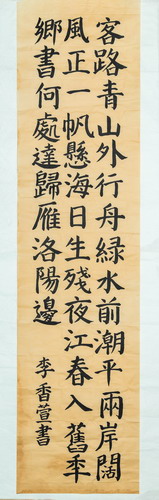 客路青山外行舟綠水前潮平兩岸闊
風正一帆懸海日生殘夜江春入舊年
鄉書何處達歸雁洛陽邊
李香萱書